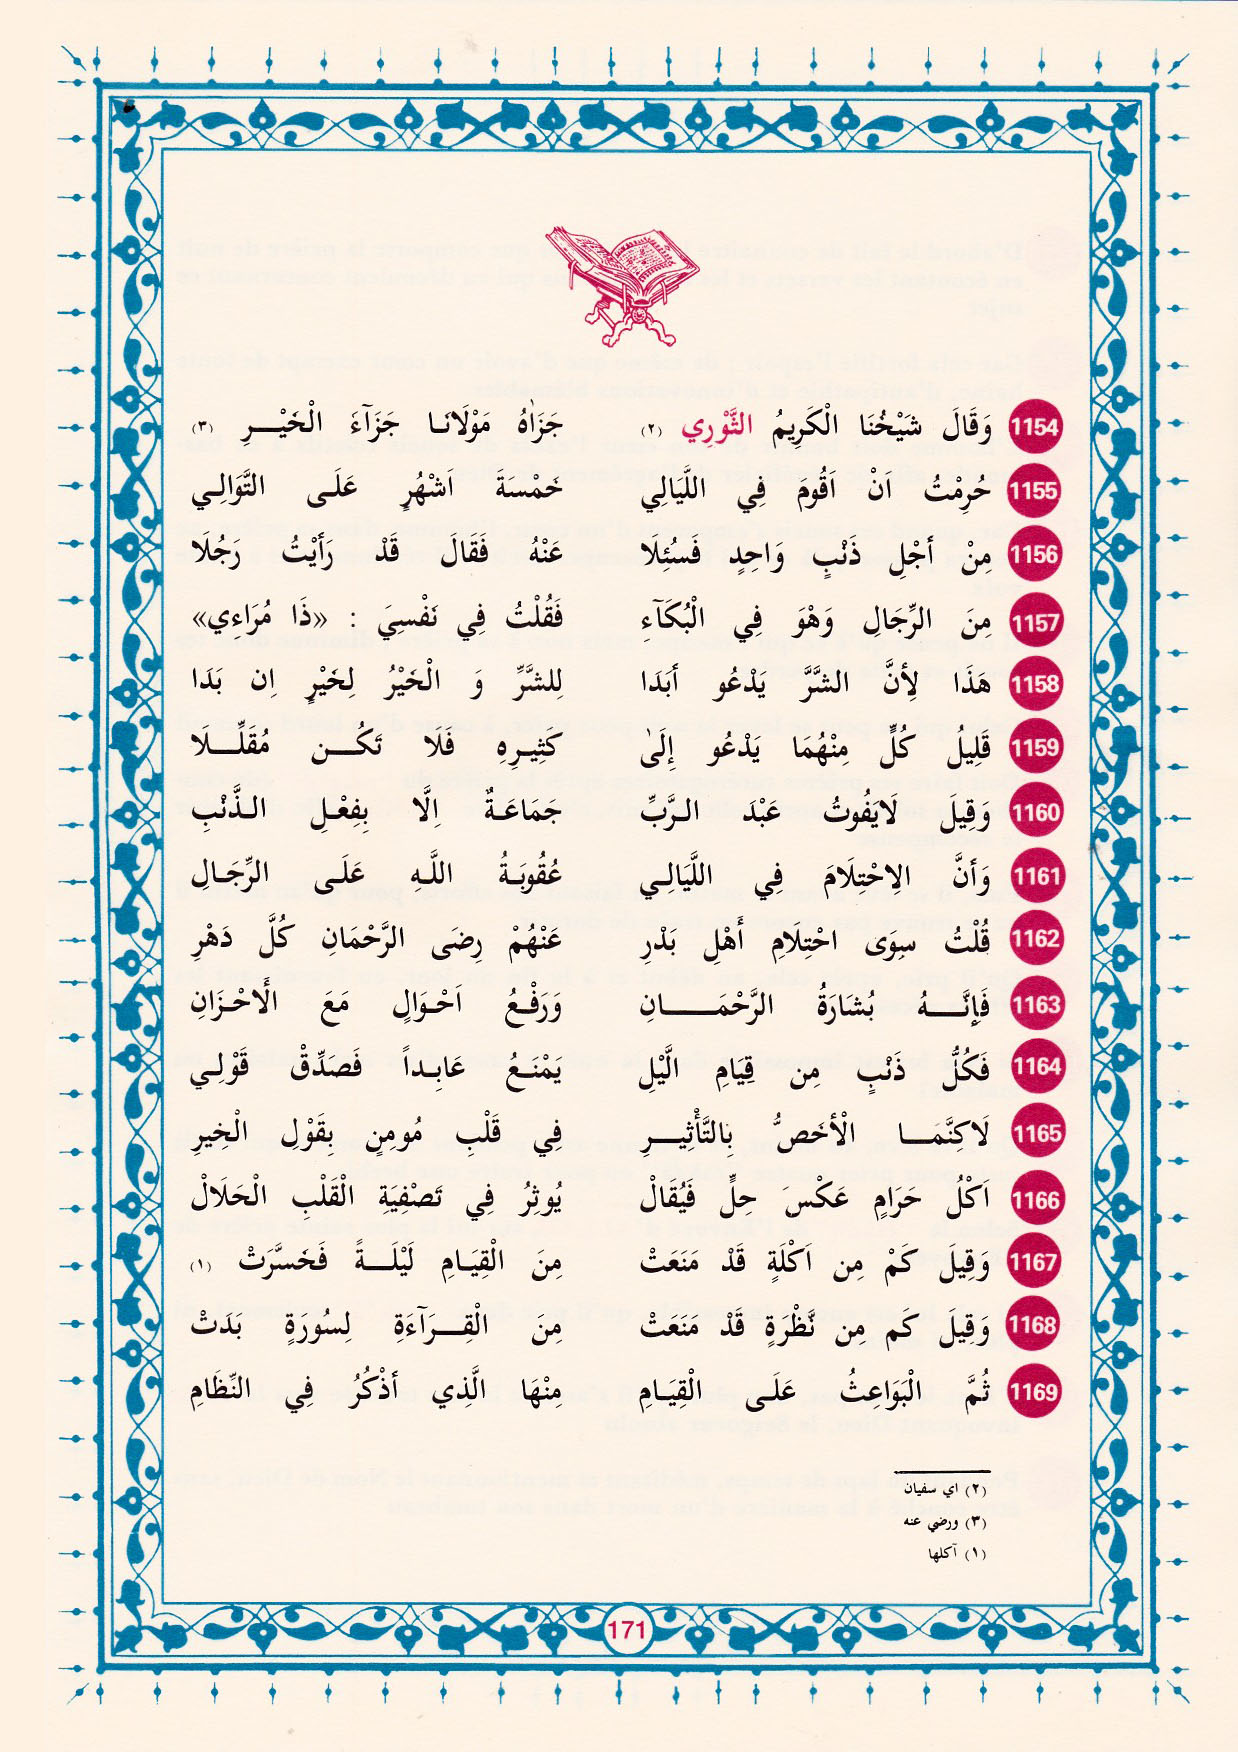 1154 وَقَالَ شَيْخُنَا الْكَرِيمُ الثَّوْرِي (٢) جَزَاهُ مَوْلَانَا جَزَآءَ الْخَيْرِ (٣)
1155 حُرِمْتُ اَنْ اَقُومَ فِي اللَّيَالِي خَمْسَةَ اَشْهُرٍ عَلَى التَّوَالِي
1156 مِنْ أَجْلِ ذَنْبٍ وَاحِدٍ فَسُئِلَا عَنْهُ فَقَالَ قَدْ رَأَيْتُ رَجُلَا
1157 مِنَ الرِّجَالِ وَهْوَ فِي الْبُكَآءِ فَقُلْتُ فِي نَفْسِيَ : «ذَا مُرَاءِي»
1158 هَذَا لِأَنَّ الشَّرَّ يَدْعُو أَبَدَا لِلشَّرِّ وَ الْخَيْرُ لِخَيْرٍ اِن بَدَا
1159 قَلِيلُ كُلٍّ مِنْهُمَا يَدْعُو إِلَىٰ كَثِيرِهِ فَلَا تَكُن مُقَلِّلَا
1160 وَقِيلَ لَايَفُوتُ عَبْدَ الرَّبِّ جَمَاعَةٌ اِلَّا بِفِعْلِ الذَّنْبِ
1161 وَأَنَّ الِاحْتِلَامَ فِي اللَّيَالِي عُقُوبَةُ اللَّهِ عَلَى الرِّجَالِ
1162 قُلْتُ سِوَى احْتِلَامِ أَهْلِ بَدْرِ عَنْهُمْ رِضَى الرَّحْمَانِ كُلَّ دَهْرِ
1163 فَإِنَّهُ بُشَارَةُ الرَّحْمَانِ وَرَفْعُ اَحْوَالٍ مَعَ الَاحْزَانِ
1164 فَكُلُّ ذَنْبٍ مِن قِيَامِ الَّيْلِ يَمْنَعُ عَابِداً فَصَدِّقْ قَوْلِي
1165 لَاكِنَّمَا الْأَخَصُّ بِالتَّأْثِيرِ فِي قَلْبِ مُومِنٍ بِقَوْلِ الْخِيرِ
1166 اَكْلُ حَرَامٍ عَكْسَ حِلٍّ فَيُقَالْ يُوثِرُ فِي تَصْفِيَةِ الْقَلْبِ الْحَلَالْ
1167 وَقِيلَ كَمْ مِن اَكْلَةٍ قَدْ مَنَعَتْ مِنَ الْقِيَامِ لَيْلَةً فَخَسَّرَتْ (١)
1168 وَقِيلَ كم مِن نَّظْرَةٍ قَدْ مَنَعَتْ مِنَ الْقِرَآءَةِ لِسُورَةٍ بَدَتْ
1169 ثُمَّ الْبَوَاعِثُ عَلَى الْقِيَامِ مِنْهَا الَّذِي أَذْكُرُ فِي النِّظَامِ
(٢) اي سفيان
(٣) ورضي عنه
(١) آكلها
171